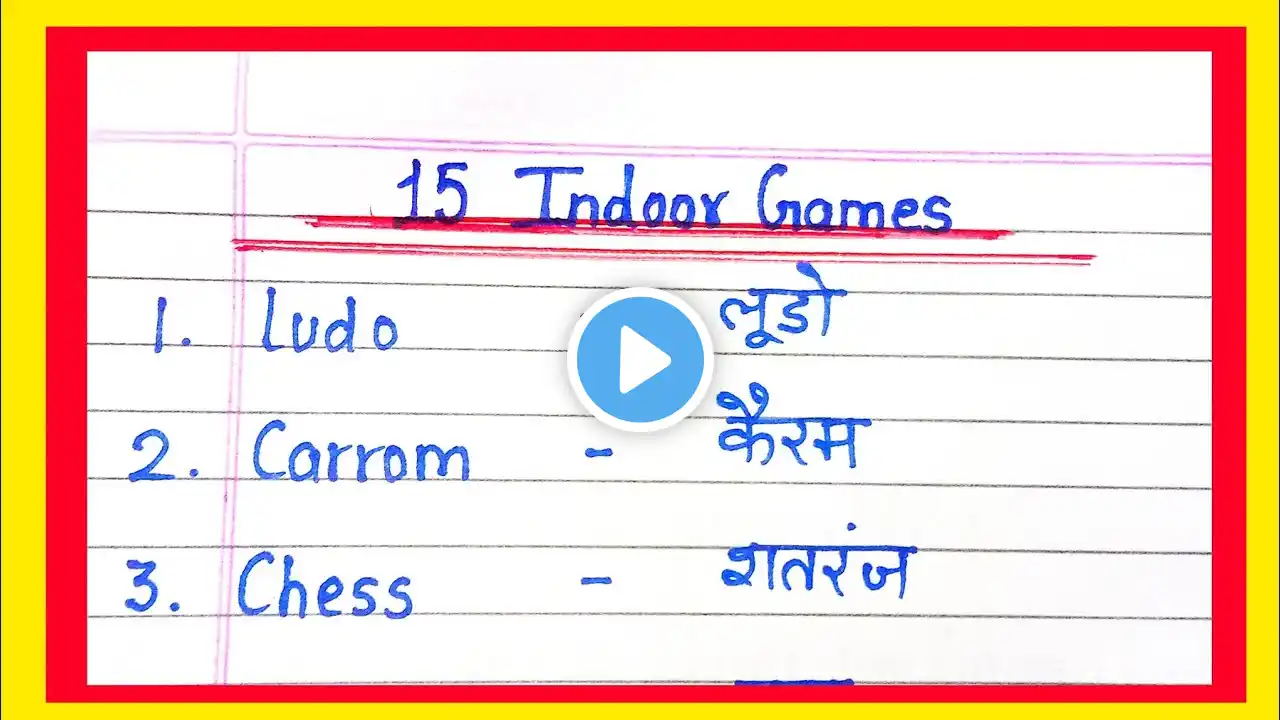 15 Indoor Games
1. Ludo - लूडो
2. Carrom - कैरम
3. Chess - शतरंज